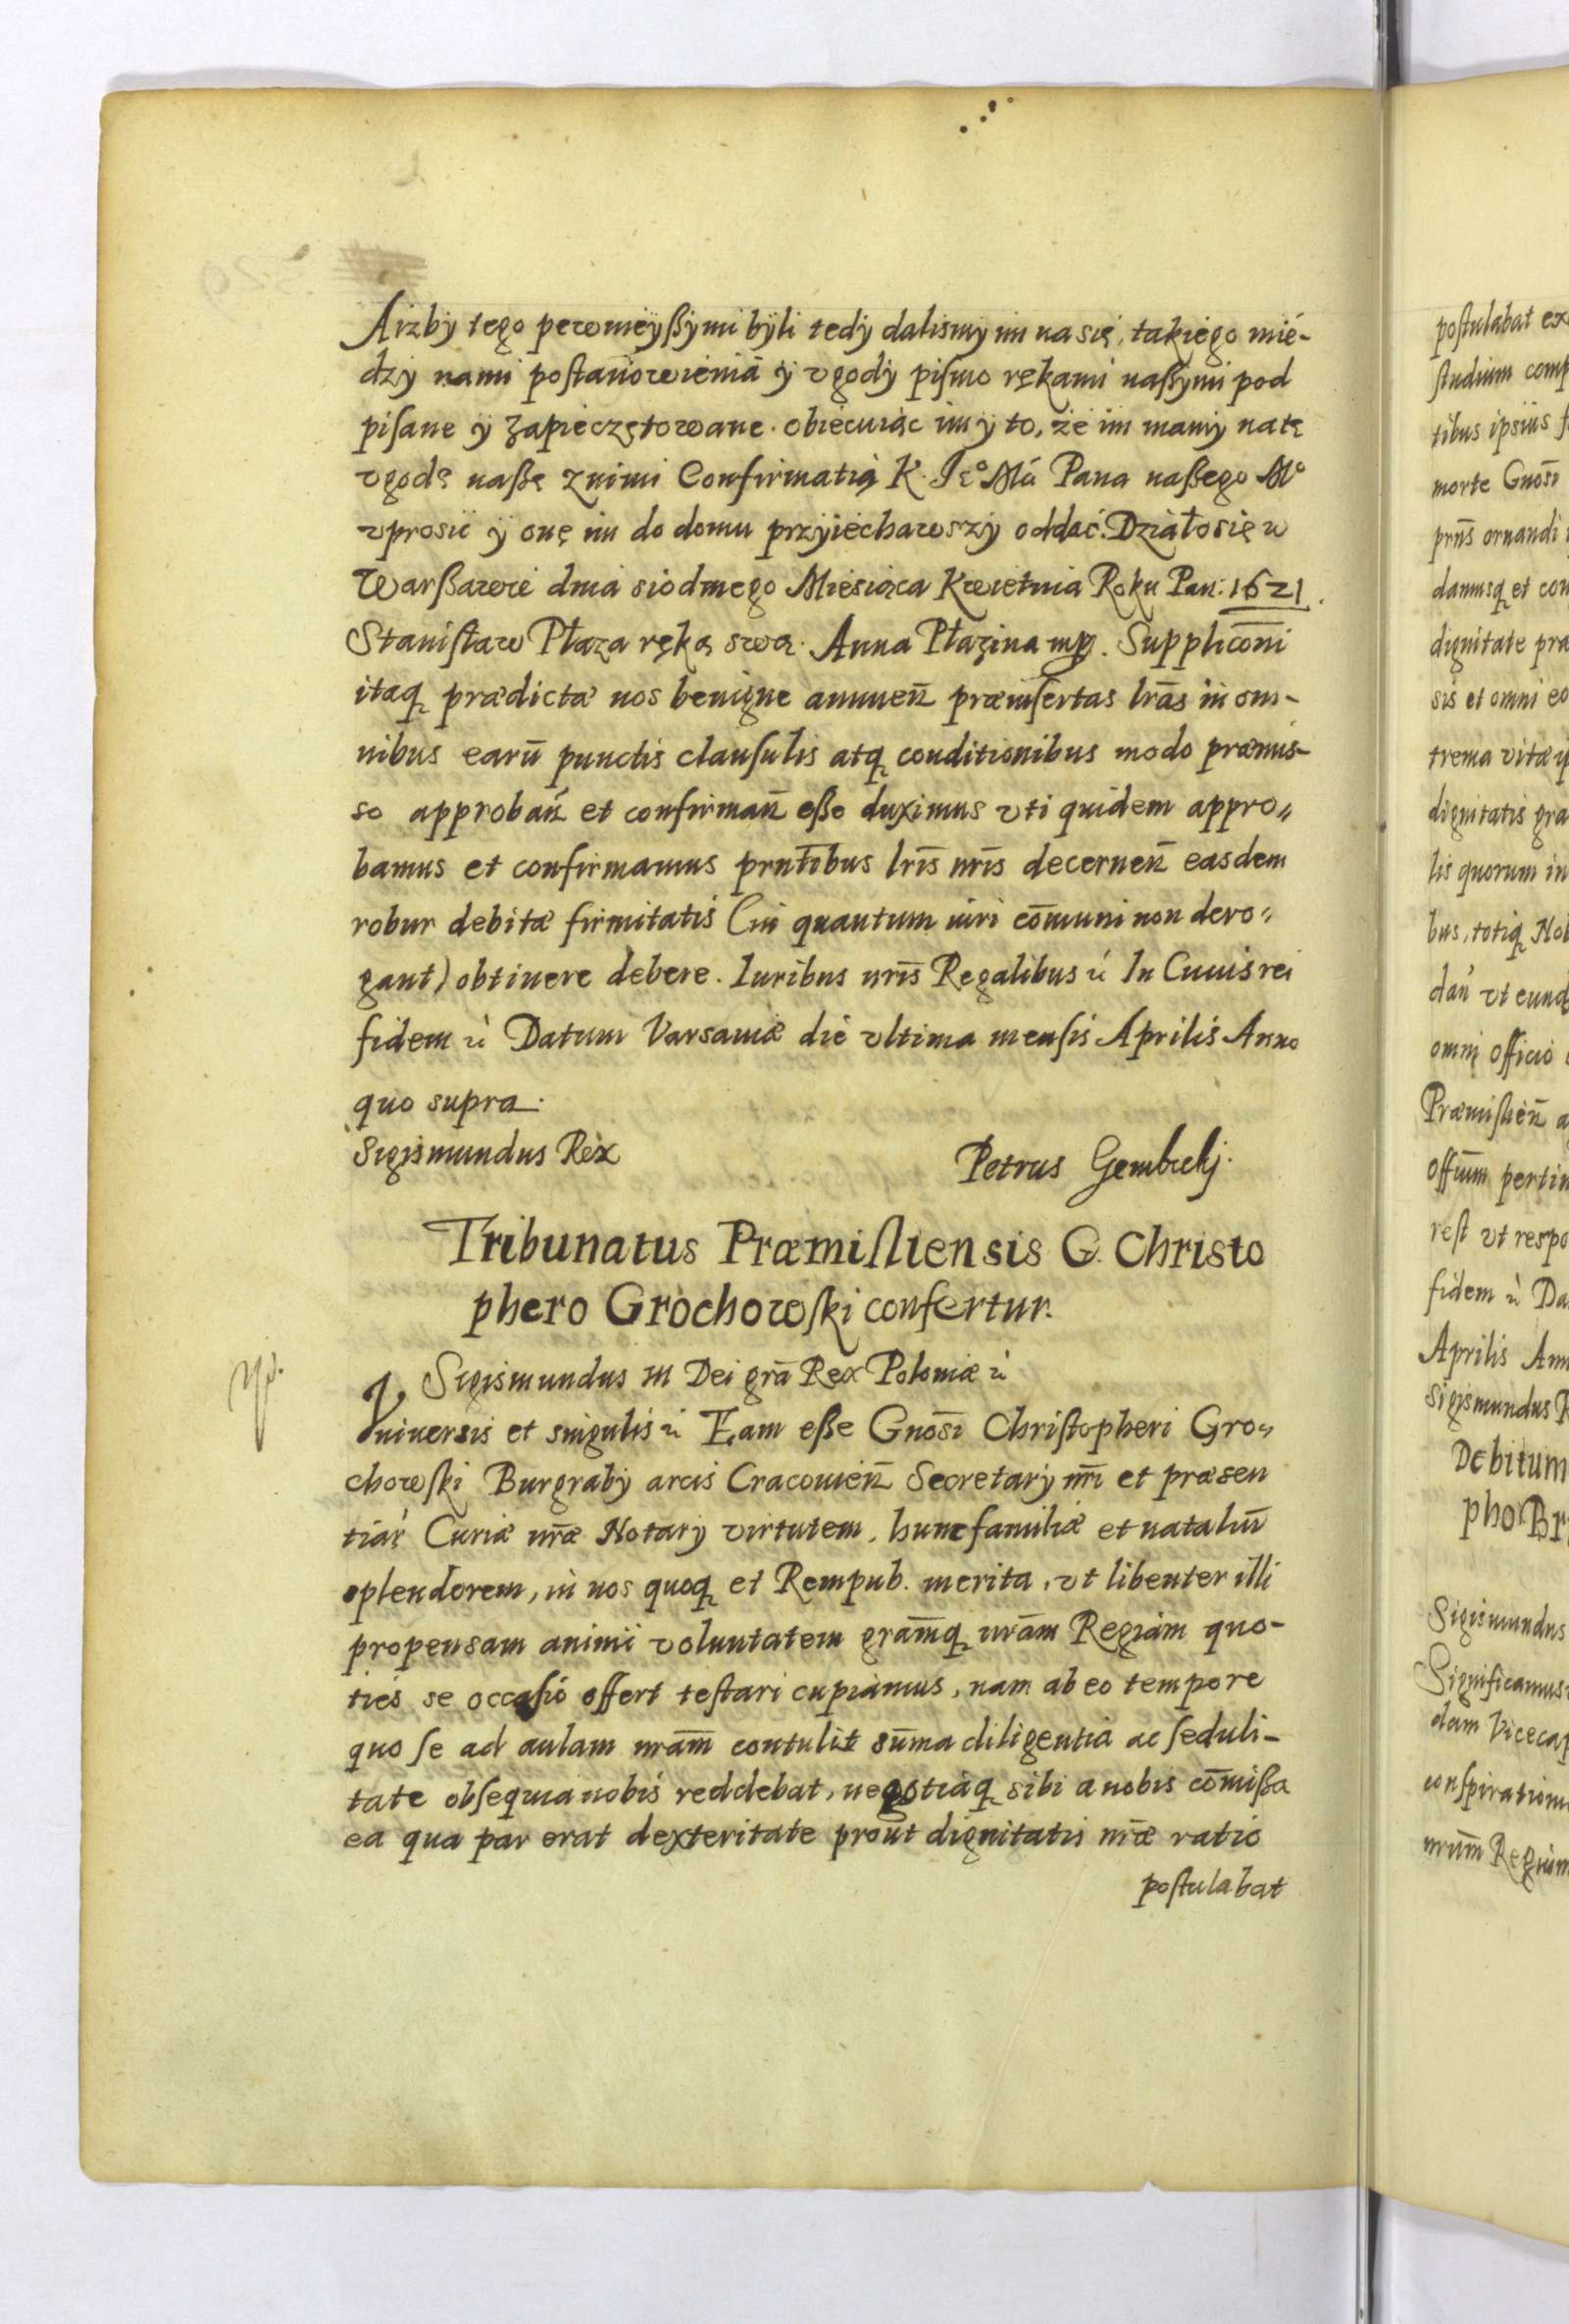 Aizby tego pewnieyßymi byli tedy dalismy im na się, takiego mié-
dzy nami poſtanowienia y vgody piſmo rękami naßymi pod
piſane y zapieczętowane. obiecuiąc im y to, że im mamy natę
vgodę naßę znimi Confirmatią K. Ieº Mći Pana naßego Mº
vprosić y onę im do domu przyiechawszy oddać. Działo się w
Warßawie dnia siodmego Miesiąca Kwietnia Roku Pan: 1621.
Staniſław Płaza ręką swą. Anna Płazina mp. Supplicōni
itaq prædictæ nos benigne annueñ præinſertas lrās in om-
nibus earū punctis clauſulis atq conditionibus modo præmis-
so approbañ et confirmañ eße duximus vti quidem appro-
bamus et confirmamus prntībus lrīs nrīs decerneñ easdem
robur debitæ firmitatis (in quantum iuri cōmuni non dero-
gant) obtinere debere. Iuribus nrīs Regalibus ꝛc̀ In Cuius rei
fidem ꝛc̀ Datum Varsaviæ die vltima menſis Aprilis Anno
quo supra.
Sigismundus Rex
Petrus Gembicki.
Tribunatus Præmiſliensis G. Christo
phero Grochowſki confertur.
Sigismundus III Dei grā Rex Poloniæ ꝛc̀
Vniversis et singulis ꝛc̀ Eam eße Gnōsi Chriſtopheri Gro-
chowſki Burgraby arcis Cracovieñ Secretary nr̄i et præsen
tiar̀ Curiæ nr̄æ Notary virtutem, hunc familiæ et nataliū
splendorem, in nos quoq et Rempub. merita, vt libenter illi
propensam animi voluntatem grām̄q nrām Regiam quo-
ties se occaſio offert teſtari cupiamus, nam ab eo tempore
quo ſe ad aulam nrām̄ contulit sūma diligentia ac ſeduli-
tate obſequia nobis reddebat, negotiaq sibi a nobis cōmißa
ea qua par erat dexteritate prout dignitatis nr̄æ ratio
poſtulabat
poſtulabat ex
ſtudium comp
tibus ipsius f
morte Gnōsi
prñs ornandi
damusq et con
dignitate præ
sis et omni eo
trema vitæ ip
dignitatis gra
lis quorum in
bus, totiq Nob
dań vt eund
omni officio
Præmiſlieñ a
offiūm pertin
reſt vt respo
fidem ꝛc̀ Da
Aprilis Ann
Sigismundus R
Debitum
pho Br
Sigismundus
Significamus
dam Viceca
conſpiration
nrūm Regium